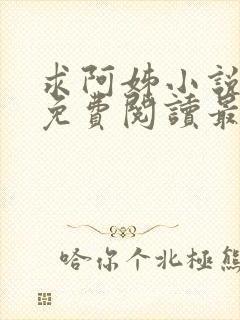 求阿姊小說
免費閱讀最
哈你个北極熊